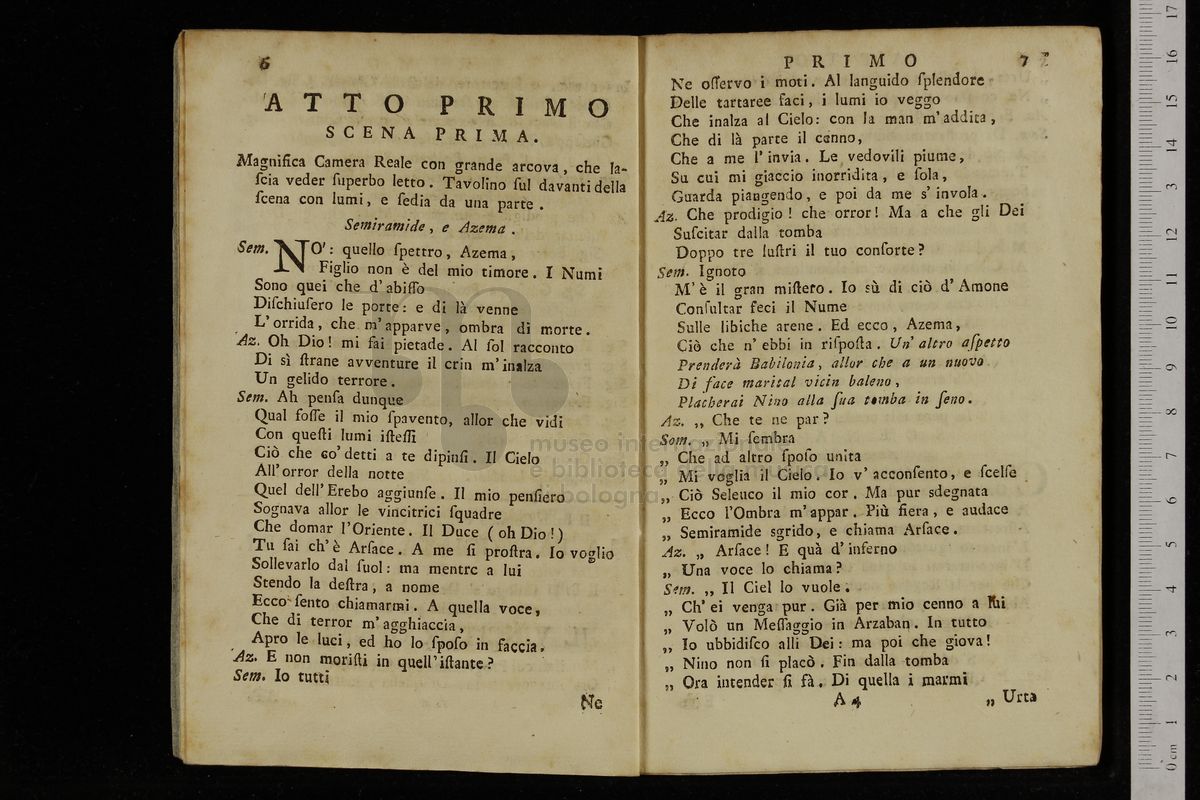 6
ATTO PRIMO
SCENA PRIMA.
Magnifica Camera Reale con grande arcova, che la-
ſcia veder ſuperbo letto. Tavolino ſul davanti della
ſcena con lumi, e ſedia da una parte.
Semiramide, e Azema.
Sem. NO': quello ſpettro, Azema,
Figlio non è del mio timore. I Numi
Sono quei che d'abiſſo
Diſchiuſero le porte: e di là venne
L'orrida, che m'apparve, ombra di morte.
Az. Oh Dio! mi fai pietade. Al ſol racconto
Di sì ſtrane avventure il crin m'inalza
Un gelido terrore.
Sem. Ah penſa dunque
Qual foſſe il mio ſpavento, allor che vidi
Con queſti lumi iſteſſi
Ciò che co'detti a te dipinſi. Il Cielo
All'orror della notte
Quel dell'Erebo aggiunſe. Il mio penſiero
Sognava allor le vincitrici ſquadre
Che domar l'Oriente. Il Duce (oh Dio!)
Tu ſai ch'è Arſace. A me ſi proſtra. Io voglio
Sollevarlo dal ſuol: ma mentre a lui
Stendo la deſtra, a nome
Ecco ſento chiamarmi. A quella voce,
Che di terror m'agghiaccia,
Apro le luci, ed ho lo ſpoſo in faccia.
Az. E non moriſti in quell'iſtante?
Sem. Io tutti
Ne
PRIMO 7
Ne oſſervo i moti. Al languido ſplendore
Delle tartaree faci, i lumi io veggo
Che inalza al Cielo: con la man m'addita,
Che di là parte il cenno,
Che a me l'invia. Le vedovili piume,
Su cui mi giaccio inorridita, e ſola,
Guarda piangendo, e poi da me s'invola.
Az. Che prodigio! che orror! Ma a che gli Dei
Suſcitar dalla tomba
Doppo tre luſtri il tuo conſorte?
Sem. Ignoto
M'è il gran miſtero. Io sù di ciò d'Amone
Conſultar feci il Nume
Sulle libiche arene. Ed ecco, Azema,
Ciò che n'ebbi in riſpoſta. Un'altro aſpetto
Prenderà Babilonia, allor che a un nuovo
Di face marital vicin baleno,
Placherai Nino alla ſua tomba in ſeno.
Az. „ Che te ne par?
Sem. „ Mi ſembra
„ Che ad altro ſpoſo unita
„ Mi voglia il Cielo. Io v'acconſento, e ſcelſe
„ Ciò Seleuco il mio cor. Ma pur sdegnata
„ Ecco l'Ombra m'appar. Più fiera, e audace
„ Semiramide sgrido, e chiama Arſace.
Az. „ Arſace! E quà d'inferno
„ Una voce lo chiama?
Sem. „ Il Ciel lo vuole.
„ Ch'ei venga pur. Già per mio cenno a lui
„ Volò un Meſſaggio in Arzaban. In tutto
„ Io ubbidiſco alli Dei: ma poi che giova!
„ Nino non ſi placò. Fin dalla tomba
„ Ora intender ſi fà. Di quella i marmi
A 4 „ Urta
museo internazionale
e biblioteca della musica
di bologna
0 cm 1 2 3 4 5 6 7 8 9 10 11 12 13 14 15 16 17